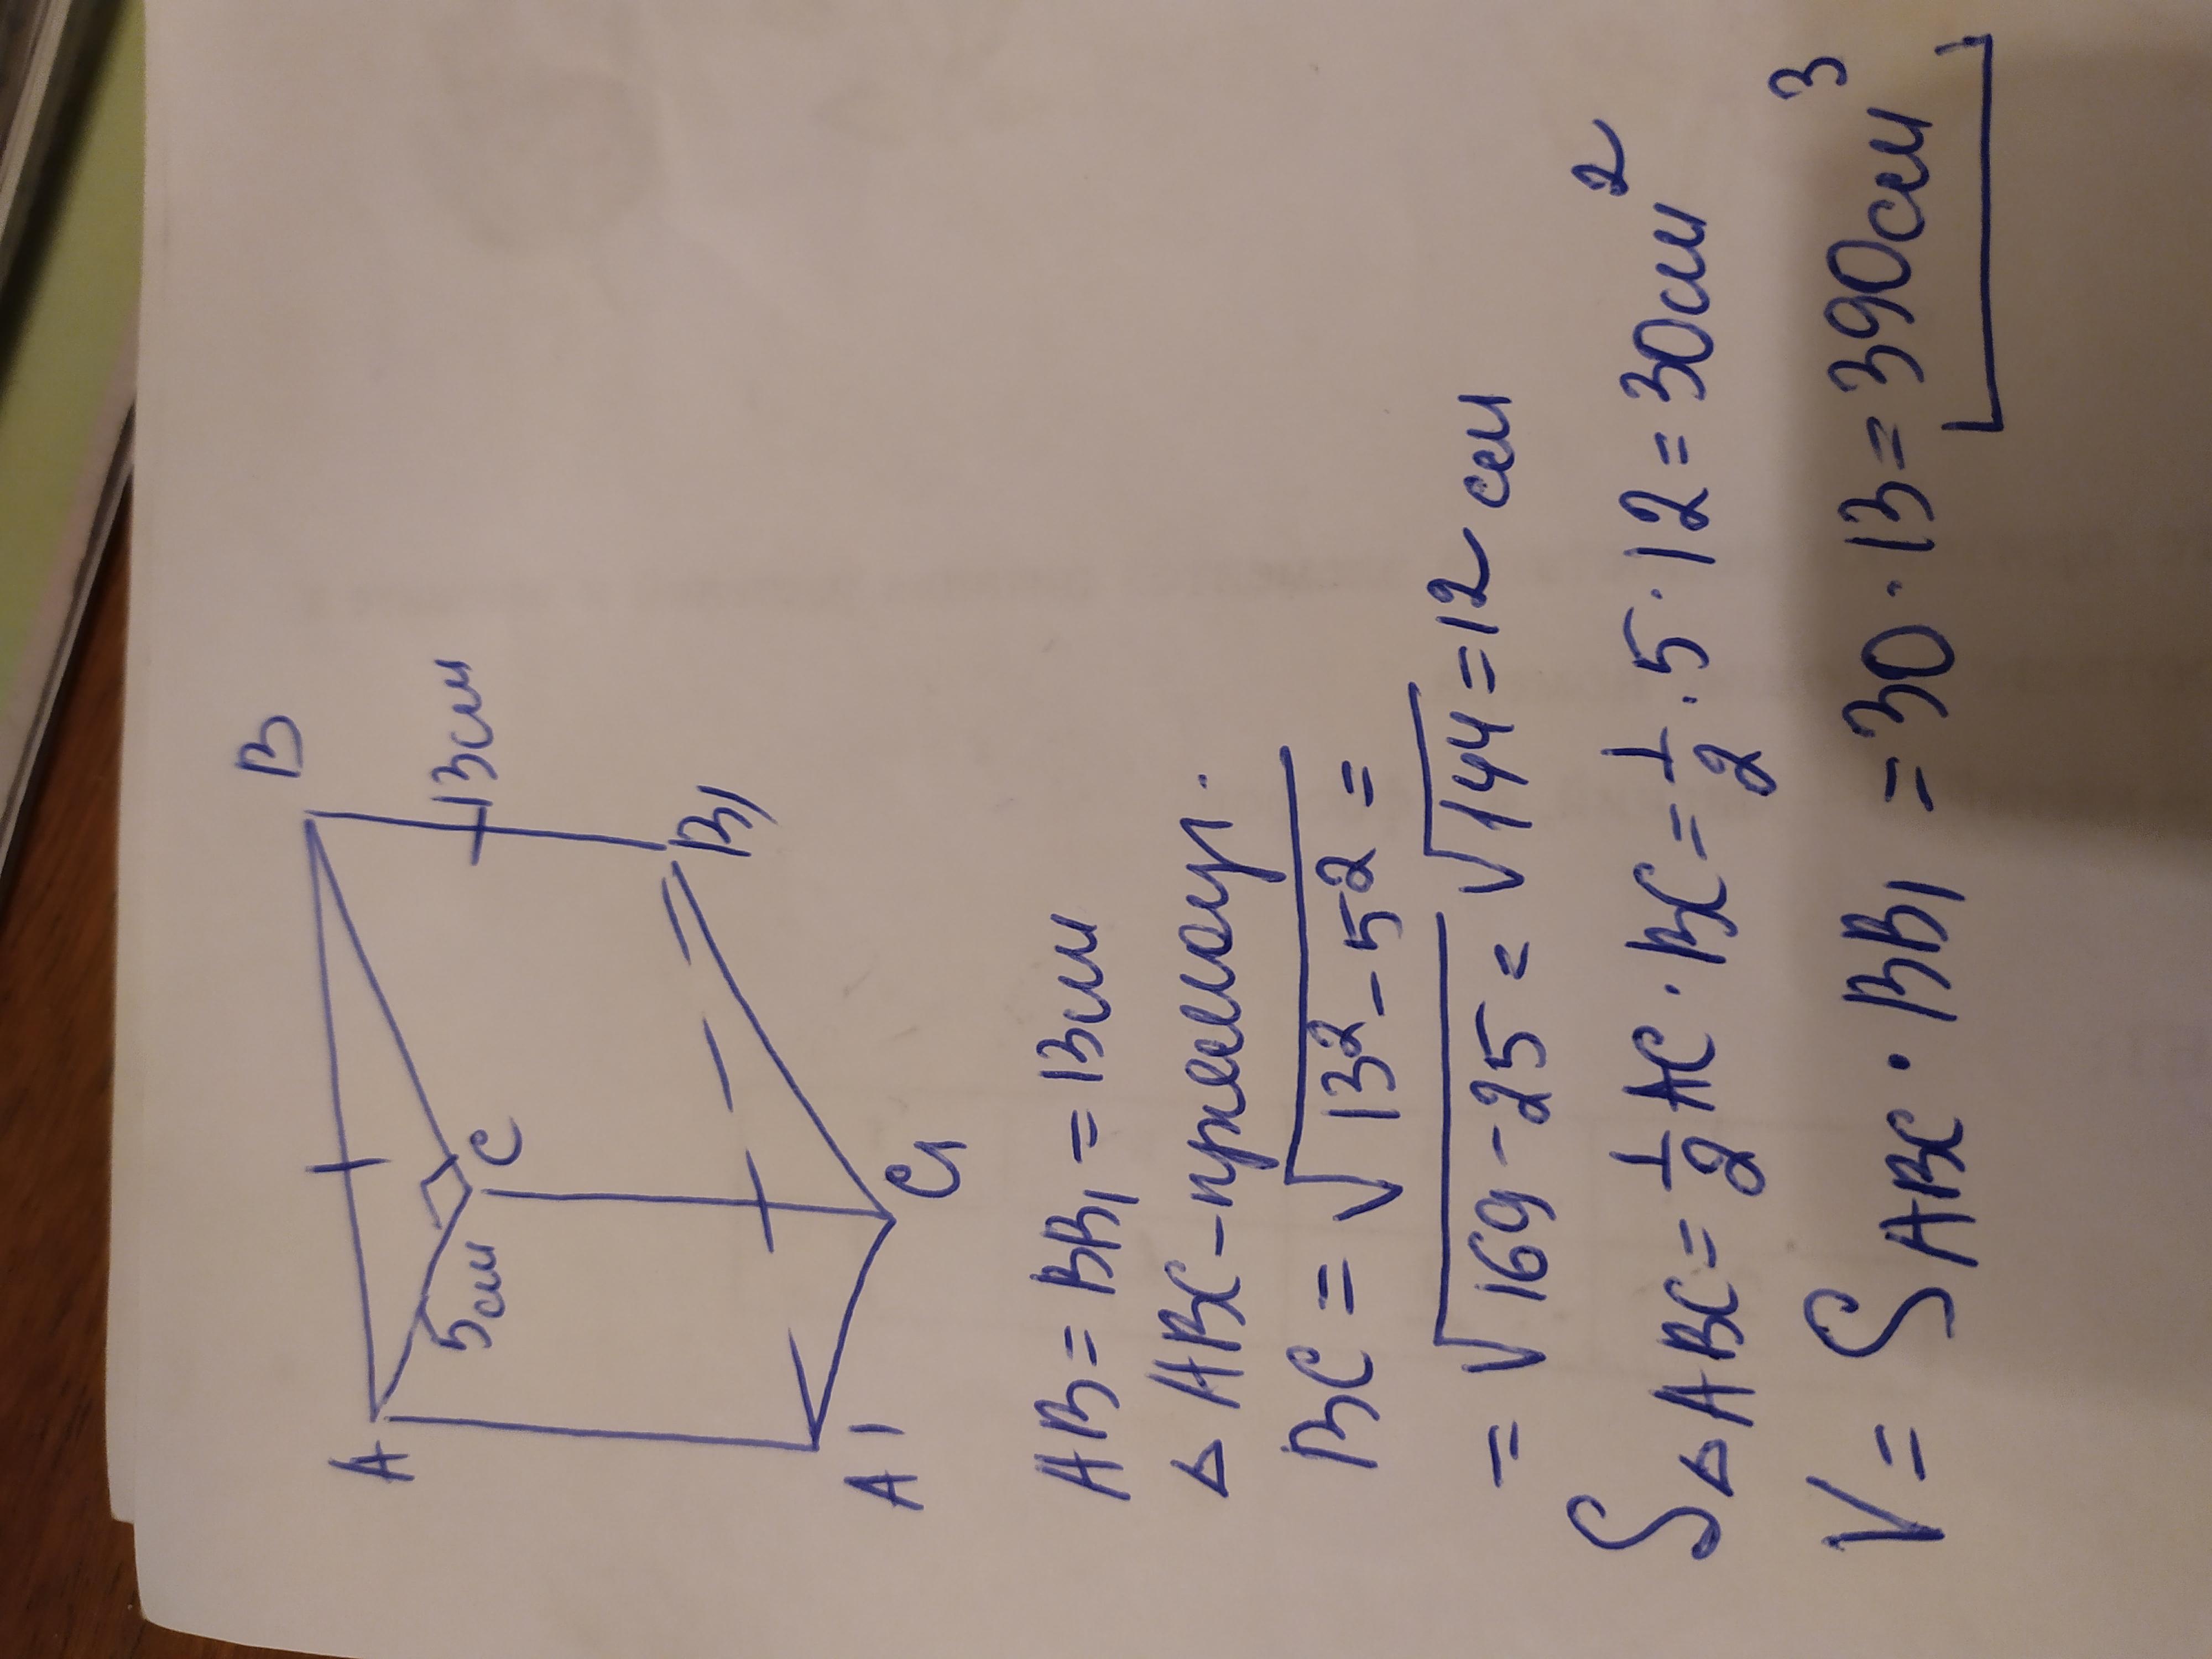 A
B
13см
5см
C
B1
A1
C1
AB = BB1 = 13см
△ ABC - прямоуг.
BC = √13² - 5² =
= √169 - 25 = √144 = 12 см
S△ABC = 1/2 AC · BC = 1/2 · 5 · 12 = 30см²
V = SABC · BB1 = 30 · 13 = 390см³